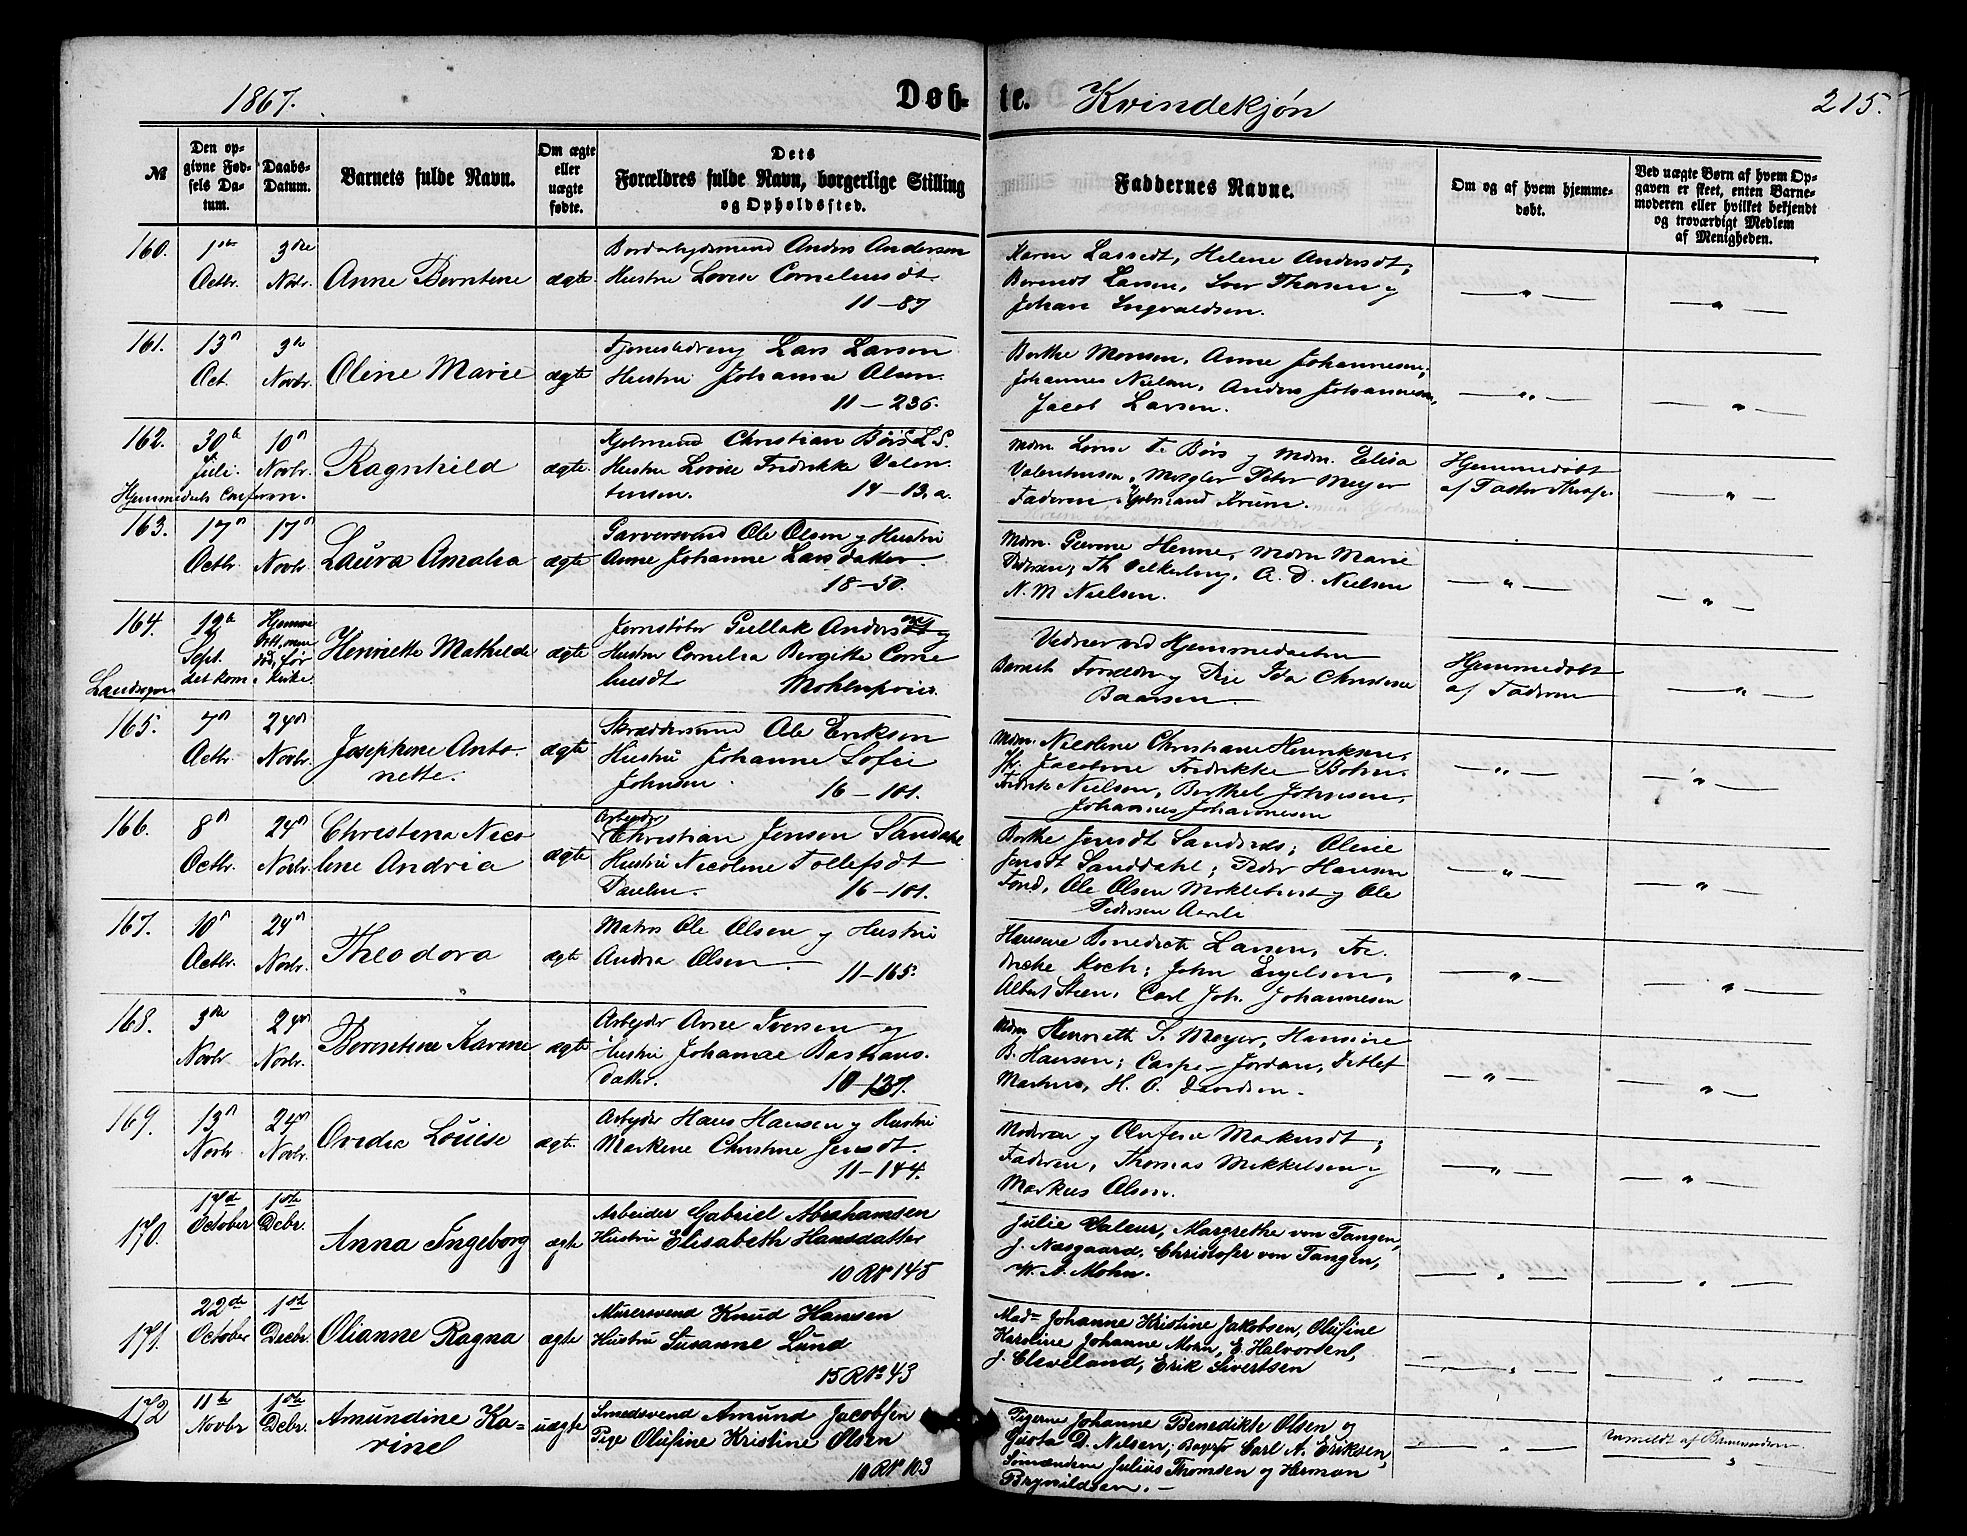 1867.
Døb-
te.
Kvindekjøn
215.
№
Den op-
givne Fød-
sels Da-
tum.
Daabs-
Datum.
Barnets fulde Navn.
Om ægte
eller
uægte
fødte.
Dets
Forældres fulde Navn, borgerlige Stilling
og Opholdssted.
Faddernes Navne.
Om og af hvem hjemme-
døbt.
Ved uægte Børn af hvem Op-
gaven er skeet, enten Barne-
moderen eller hvilket bekjendt
og troværdigt Medlem
af Menigheden.
160.
1ste
Octbr.
3die
Novbr.
Anne Berntine
ægte
Anders Andersen
Hustru Lovise Corneliusdt.
11-87
Karen Larsdt, Helene Andersdt,
Berendt Larsen, Iver Thosen og
Johan Ingvaldsen.
161.
13n
Oct.
3die
Novbr.
Oline Marie
ægte
Tjenestedreng Lars Larsen
Hustru Johanne Olsen.
11-236.
Berthe Monsen, Anne Johannesen,
Johannes Nielsen, Anders Johannesen,
Jacob Larsen.
162.
30te
Juli.
10n
Novbr.
Ragnhild
ægte.
Christian Børs L.S.
Hustru Lovise Fredrikke Valen-
tinsen.
14-13,a.
Hjemmedaab Conferm.
Mdm. Lovise T. Børs og Mdm. Elisa
Valentinsen, Mægler Peter Meyer
Faderen, Krüm.
Hjemmedøbt
af Pastor
163.
17n
Octbr.
17n
Novbr.
Laura Amalia
ægte
Garversvend Ole Olsen og Hustru
Anne Johanne Larsdatter.
18-50.
Mdm. Henne, Mdm Marie
Pedersen, Th A. D. Nielsen
N. M. Nielsen.
164.
12te
Sept.
Hjemme
døbt, men
død, før
det kom i Kirke
Landsogn
Henriette Mathilde
ægte
Jernstøber Gullak Andersen og
Hustru Cornelia Bergitte Corne-
liusdt
Møhlenpriis.
Vedner ved Hjemmedaaben
Barnets Forældre og Pige Ida Christine
Baarsen.
Hjemmedøbt
af Faderen
165.
7n
Octbr.
24n
Novbr.
Josephine Anto-
nette.
ægte
Skræddersvend Ole Eriksen
Hustru Johanne Sofie
Johnsen.
16-101.
Mdm. Nicoline Christiane Henriksen,
Jfr. Jacobine Fredrikke Bohn,
Fredrik Nielsen, Berthel Johnsen,
Johannes Johannesen
166.
8n
Octbr.
24n
Novbr.
Christina Nico
line Andria
ægte
Arbeyder
Christian Jenson Sandahl
Hustru Nicoline Tollefsdt
Paulsen.
16-101.
Berthe Jensdt Oline
Jensdt Sanddahl; Peder Hansen
Fond, Ole Olsen Myklebust og Ole
Pedersen
167.
10n
Octbr.
24n
Novbr.
Theodora
ægte
Matros Ole Olsen og Hustru
Andrea Olsen.
11-165.
Hansine Benedicte Larsen, Fre-
drikke Koch; John Engelsen,
Albert Steen, Carl Joh. Johannesen
168.
3die
Novbr
24n
Novbr.
Berentine Karine
ægte
Arbeyder Arne Iversen og
Hustru Johanne Bastians-
datter.
10-137.
Mdm Henrieth S. Meyer, Hansine
B. Hansen; Casper Jordan, Detlef
Martens, H. O. Davidsen.
169.
13n
Novbr
24n
Novbr.
Ovedia Louise
ægte.
Arbeyder Hans Hansen og Hustru
Markene Christine Jensdt.
11-144.
Moderen og Olufine Markusdt;
Faderen, Thomas Mikkelsen og
Markus Olsen.
170.
17de
October
1ste
Decbr.
Anna Ingeborg
ægte
Arbeider Gabriel Abrahamsen
Hustru Elisabeth Hansdatter
10 R№ 145
Julie Valeur, Margrethe von Tangen,
J. Næsgaard, Christofer von Tangen,
W. A. Mohn.
171.
22de
October
1ste
Decbr.
Olianne Ragna
ægte
Murersvend Knud Hansen
Hustru Susanne Lund
15 R№ 43
Madm Johanne Kristine Jakobsen, Olufine
Karoline Johanne Mohn, E. Halvorsen,
J. Cleveland, Erik Sivertsen
172
11te
Novbr
1ste
Decbr.
Amundine Ka-
rine
uægte
Smedsvend Amund Jacobsen
Pige Olufine Kristine Olsen
10 R№ 103
Pigerne Johanne Benedikte Olsen og
Gusta D. Nilsen; Carl A. Eriksen,
Sømændene Julius Thomsen og Herman
Brynildsen.
Anmeldt af Barnemoderen